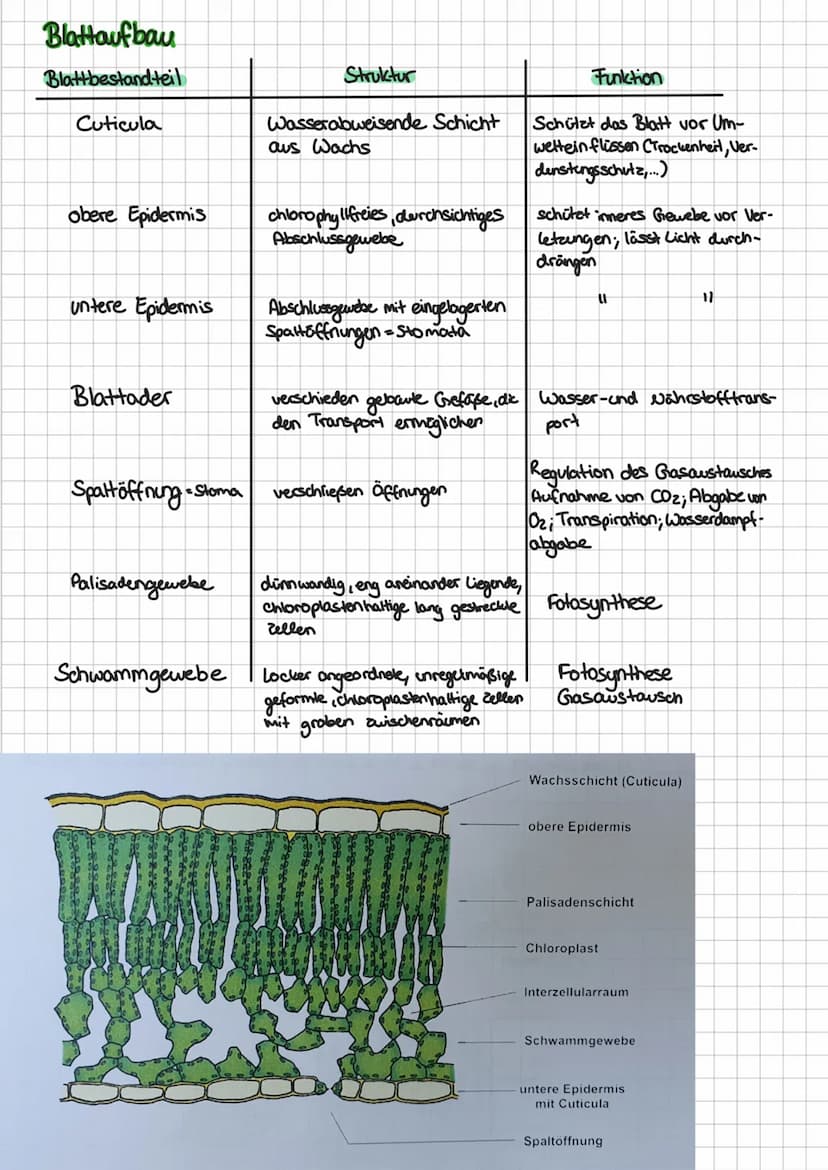 Blattaufbau
Blattbestandteil Struktur Funktion
Cuticula
Wasserabweisende Schicht
aus Wachs
Schützt das Blatt vor Um-
welteinflüssen (Trockenheit, Ver-
dunstungsschutz,...)
obere Epidermis
chlorophyllfreies, durchsichtiges
Abschlussgewebe
schützt inneres Gewebe vor Ver-
letzungen; lässt Licht durch-
drängen
untere Epidermis
Abschlussgewebe mit eingelagerten
Spaltöffnungen = Stomata
" "
Blattader
verschieden gebaute Gefäße, die
den Transport ermöglichen
Wasser- und Nährstofftrans-
port
Spaltöffnung = Stoma
verschließen Öffnungen
Regulation des Gasaustausches
Aufnahme von CO2; Abgabe von
O2; Transpiration; Wasserdampf-
abgabe
Palisadengewebe
dünnwandig, eng aneinander liegende,
chloroplastenhaltige lang gestreckte
Zellen
Fotosynthese
Schwammgewebe
Locker angeordnete, unregelmäßige
geformte, chloroplastenhaltige Zellen
mit groben zwischenräumen
Fotosynthese
Gasaustausch
Wachsschicht (Cuticula)
obere Epidermis
Palisadenschicht
Chloroplast
Interzellularraum
Schwammgewebe
untere Epidermis
mit Cuticula
Spaltöffnung